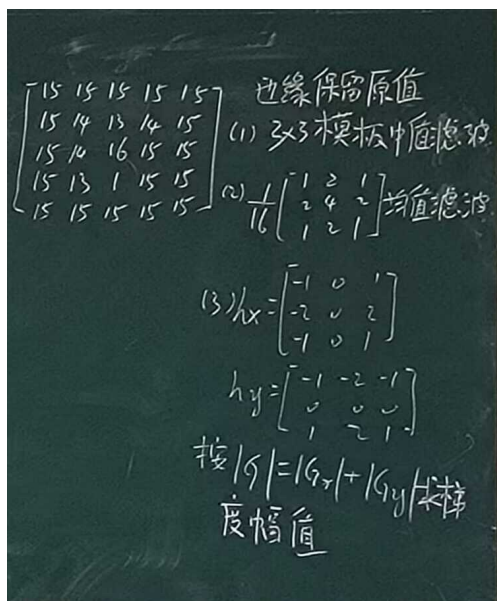 15 15 15 15 15
15 14 13 14 15
15 14 16 15 15
15 13 1 15 15
15 15 15 15 15
边缘保留原值
(1) 3×3模板中值滤波
(2) 1/16 [1 2 1
2 4 2
1 2 1] 均值滤波
(3) hx=[-1 0 1
-2 0 2
-1 0 1]
hy=[-1 -2 -1
0 0 0
1 2 1]
按|G|=|Gx|+|Gy|求梯
度幅值